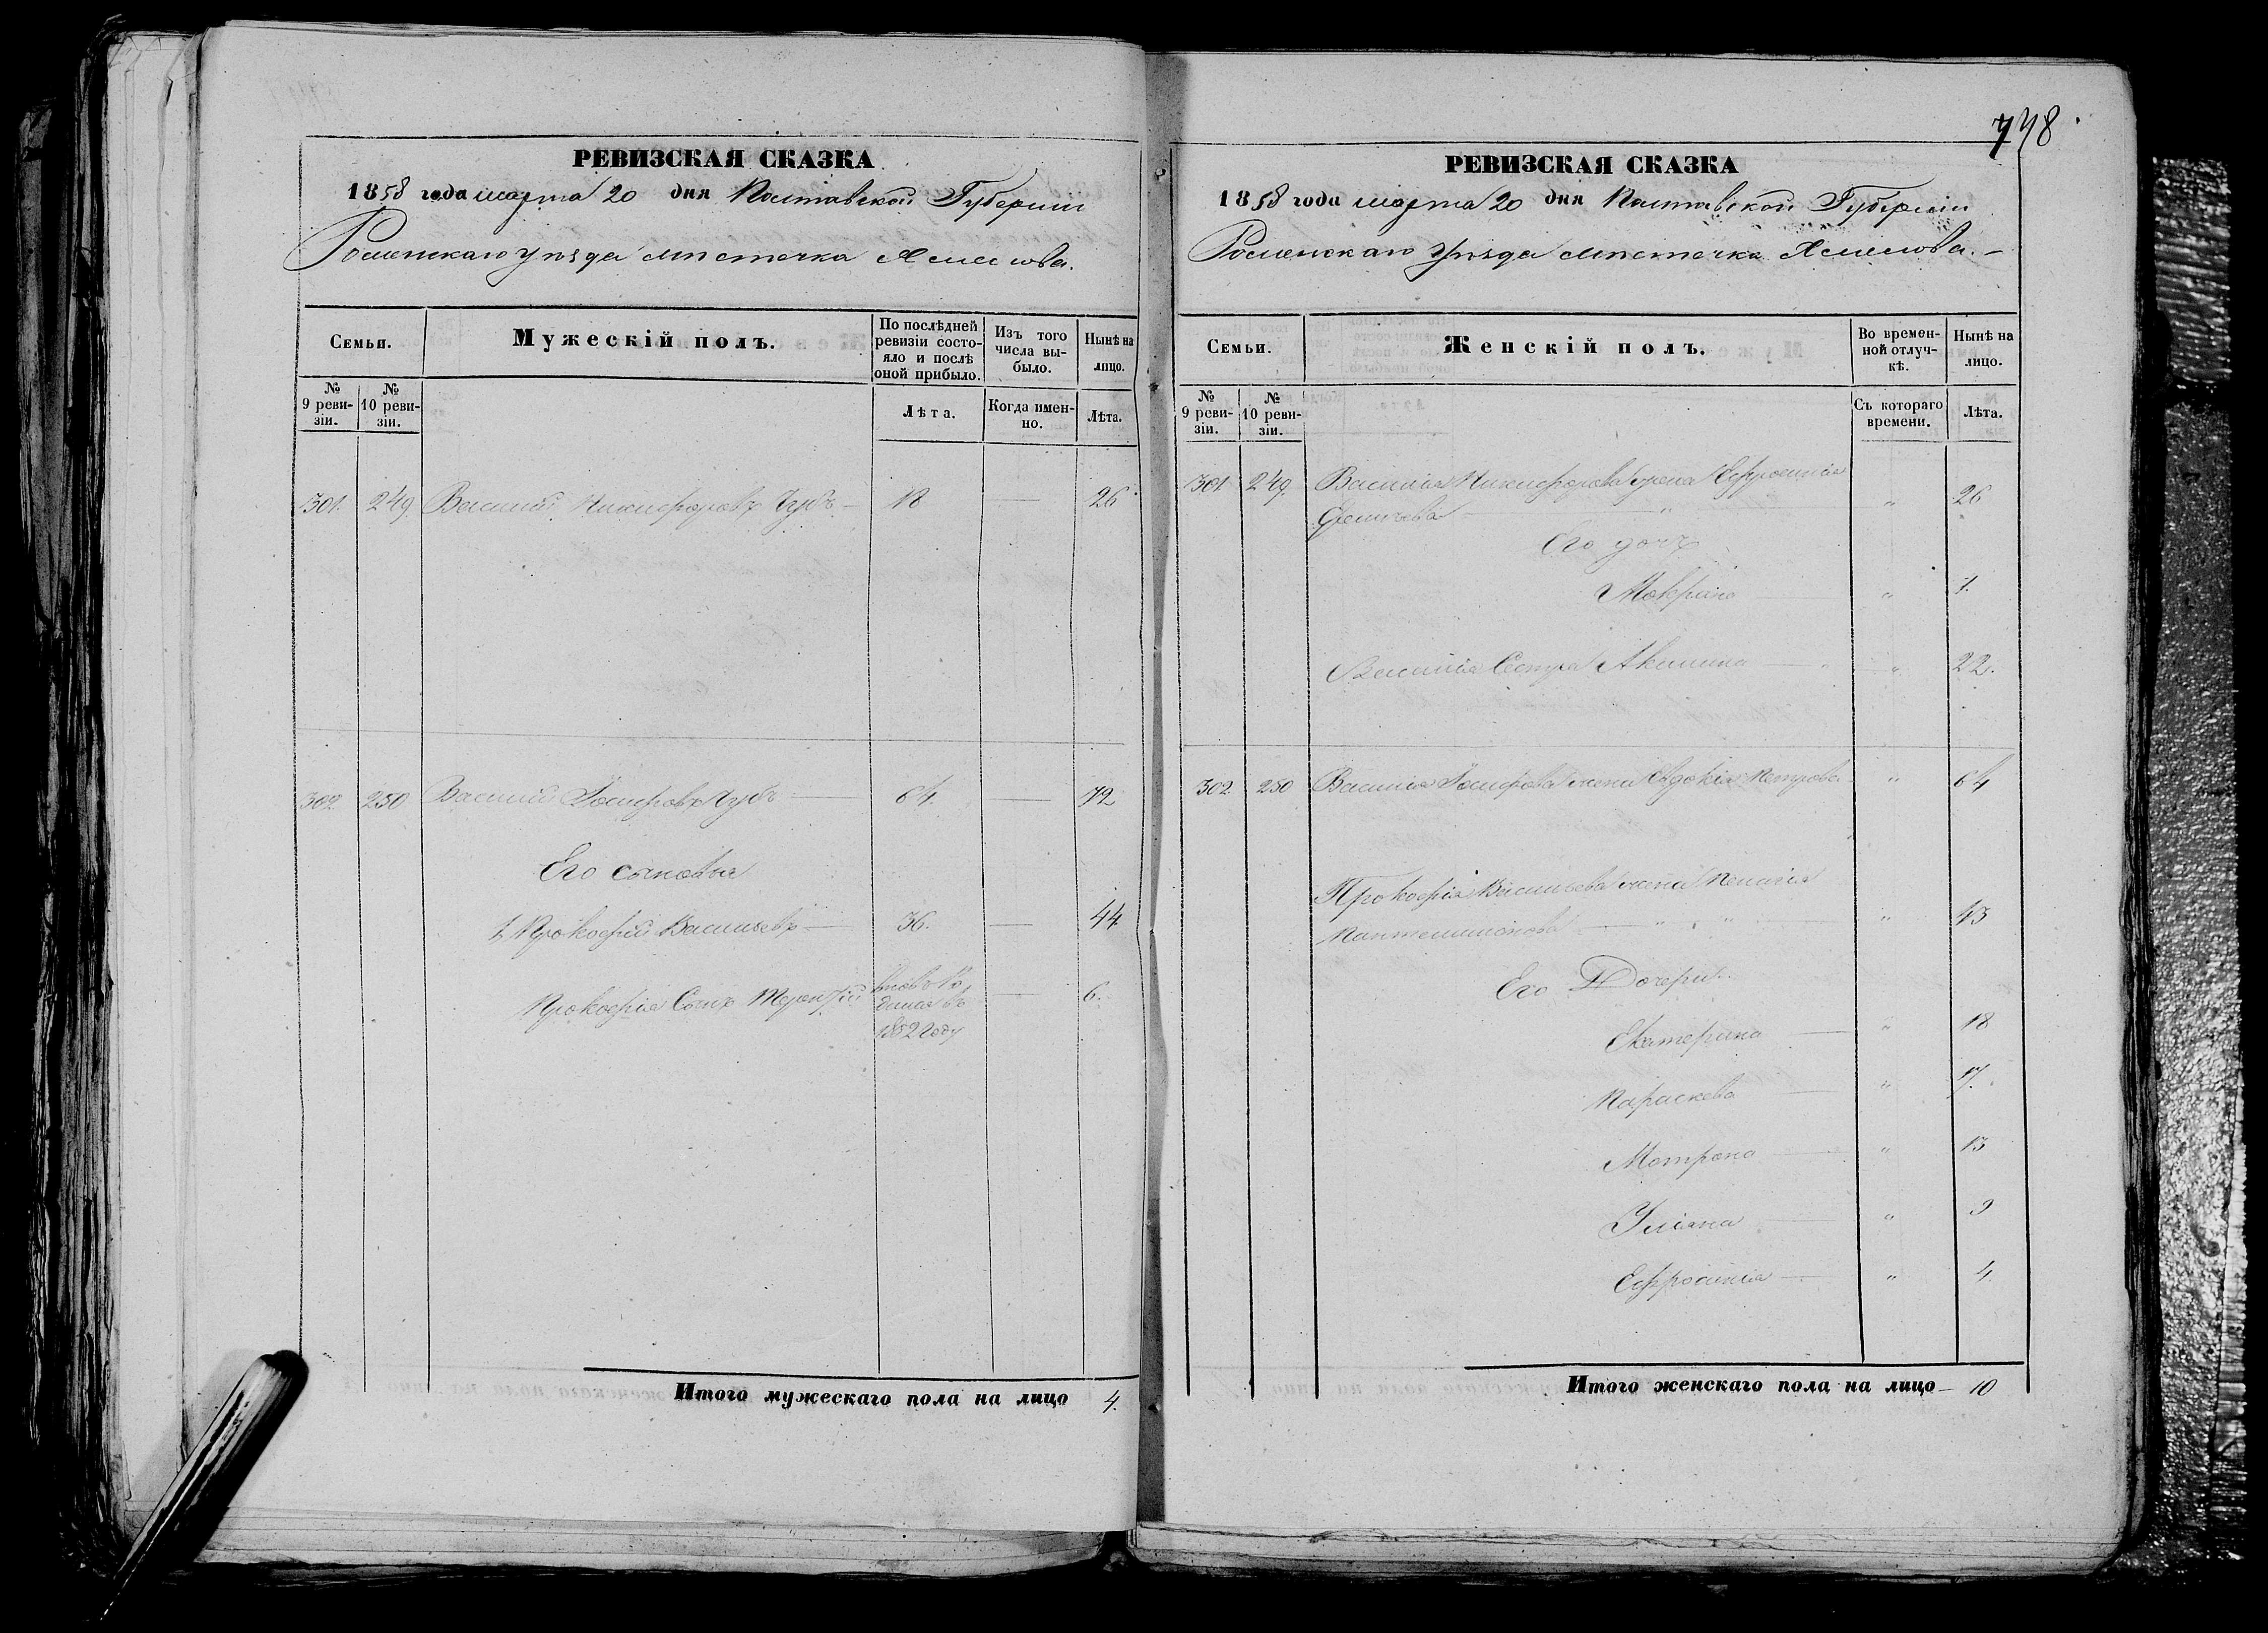 РЕВИЗСКАЯ СКАЗКА
1858 года марта 20 дня Полтавской Губерніи
Роменскаго уѣзда мѣстечка Хмелова.
Семьи.
Мужескій полъ.
По послѣдней ревизіи состояло и послѣ оной прибыло.
Изъ того числа выбыло.
Нынѣ на лицо.
№ 9 ревизіи.
№ 10 ревизіи.
Лѣта.
Когда именно.
Лѣта.
301. 249. Василий Никифоровъ Чубъ — 18 — 26
302 250 Василий Іосифовъ Чубъ 64. — 72
Его сыновья
1, Прокофій Васильевъ — 36. — 44
Прокофія Сынъ Терентій вновь родился въ 1852 году — 6.
Итого мужескаго пола на лицо 4.
778
РЕВИЗСКАЯ СКАЗКА
1858 года марта 20 дня Полтавской Губерніи
Роменскаго уѣзда мѣстечка Хмелова. –
Семьи.
Женскій полъ.
Во временной отлучкѣ.
Нынѣ на лицо.
№ 9 ревизіи.
№ 10 ревизіи.
Съ котораго времени.
Лѣта.
301 249. Василія Никифорова жена Ефросинія
" 26
Его дочь
Макрина " 1.
Василія Сестра Акилина — " 22.
302. 250 Василія Іосифова жена Евдокія Петрова " 64
Прокофія Васильева жена Пелагія
Пантелимонова — " 43
Его Дочери
Екатерина — " 18
Параскева — " 17.
Мотрона — " 13
Уліана — " 9
Ефросинія — " 4.
Итого женскаго пола на лицо – 10